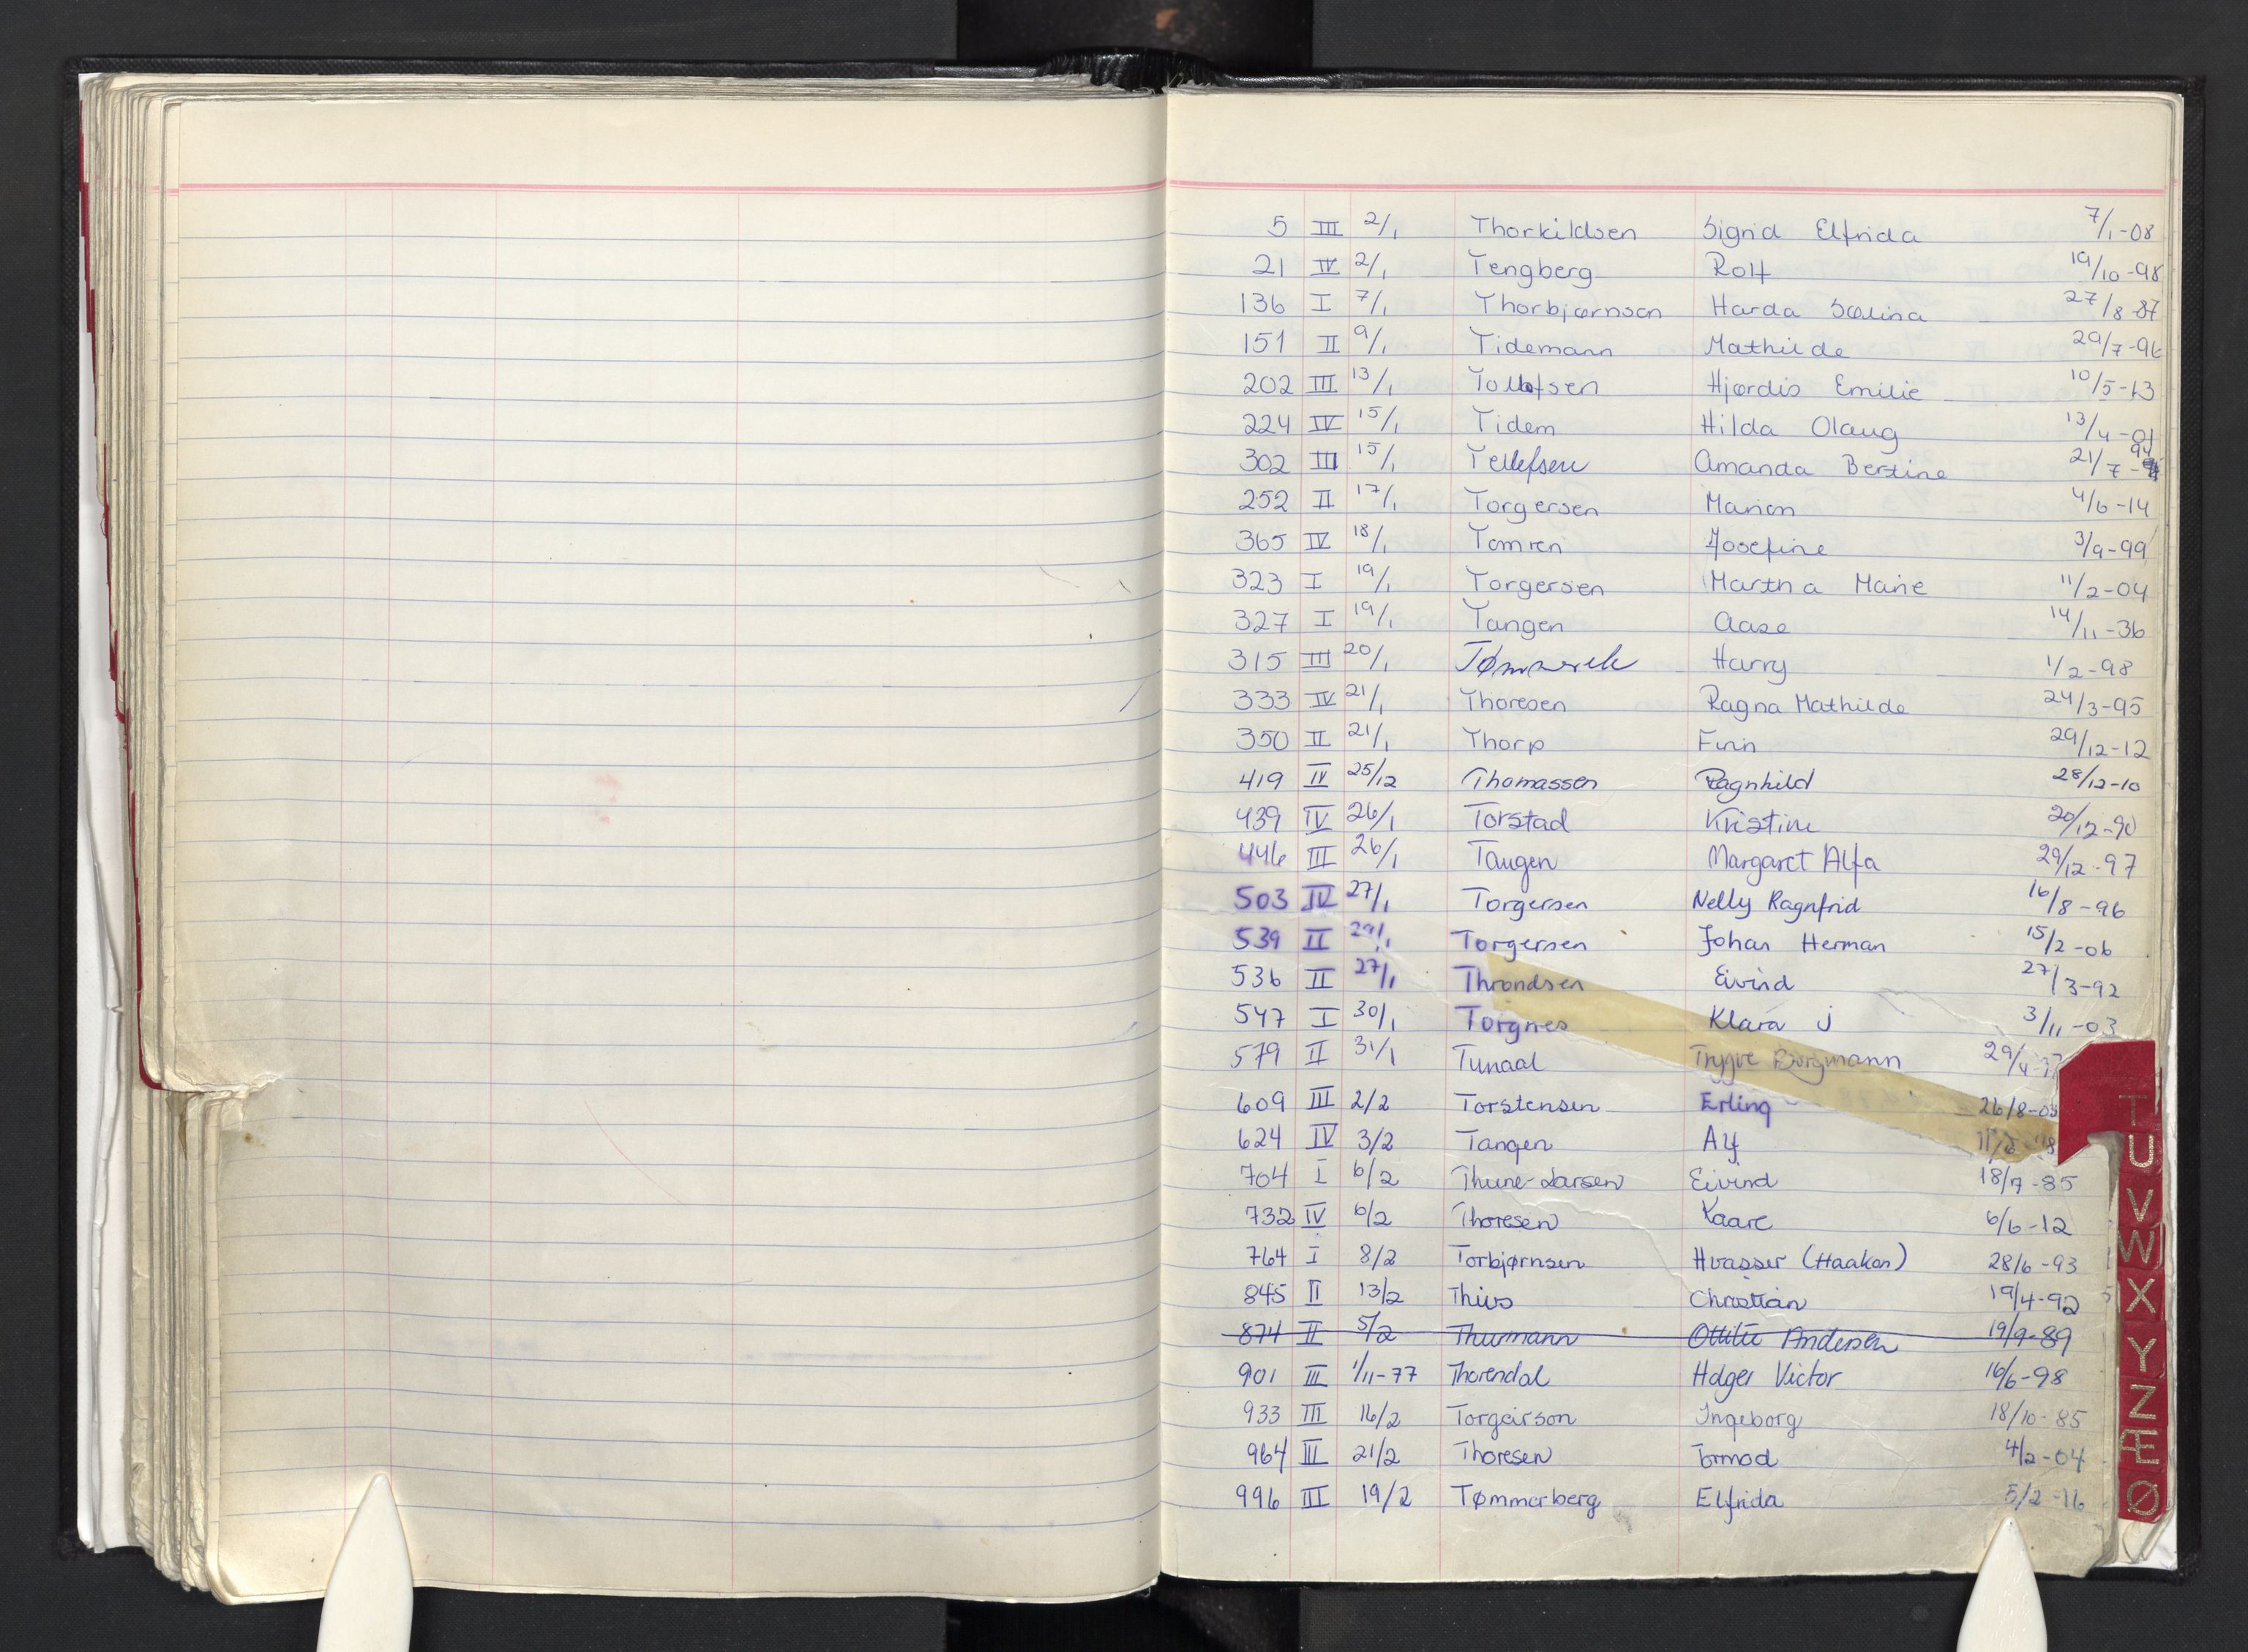 5 III 2/1 Thorkildsen Sigrid Elfrida 7/1-08
21 IV 2/1 Tengberg Rolf 19/10-98
136 I 7/1 Thorbjørnsen Harda 27/8-87
151 II 9/1 Tidemann Mathilde 29/7-96
202 III 13/1 Tollefsen Hjørdis Emilie 10/5-13
224 IV 15/1 Tidem Hilda Olaug 13/4-01
302 III 15/1 Tellefsen Amanda Bertine 21/7-94
252 II 17/1 Torgersen Marion 4/6-14
365 IV 18/1 Tomren Josefine 3/9-99
323 I 19/1 Torgersen Martha Marie 11/2-04
327 I 19/1 Tangen Aase 14/11-36
315 III 20/1 Harry 1/2-98
333 IV 21/1 Thoresen Ragna Mathilde 24/3-95
350 II 21/1 Thorp Finn 29/12-12
419 IV 25/12 Thomassen Ragnhild 28/12-10
439 IV 26/1 Torstad Kristine 20/12-90
446 III 26/1 Tangen Margaret Alfa 29/12-97
503 IV 27/1 Torgersen Nelly Ragnfrid 16/8-96
539 II 29/1 Torgersen Johan Herman 15/2-06
536 II 27/1 Throndsen Eivind 27/3-92
547 I 30/1 Torgnes Klara J 3/11-03
579 II 31/1 Tunaal Trygve Borgmann
609 III 2/2 Torstensen Erling 26/8-03
624 IV 3/2 Tangen Alf
704 I 6/2 Thune-Larsen Eivind 18/7-85
732 IV 6/2 Thoresen Kaare 6/6-12
764 I 8/2 Torbjørnsen Hvasser (Haakon) 28/6-93
845 II 13/2 Thiis Christian 19/4-92
874 II 5/2 Thurmann Ottilie Andersen 19/9-89
901 III 1/11-77 Thorendal Holger Victor 16/6-98
933 III 16/2 Torgeirson Ingeborg 18/10-85
964 III 21/2 Thoresen Tormod 4/2-04
996 III 19/2 Tømmerberg Elfrida 5/2-16
T
U
V
W
X
Y
Z
Æ
Ø